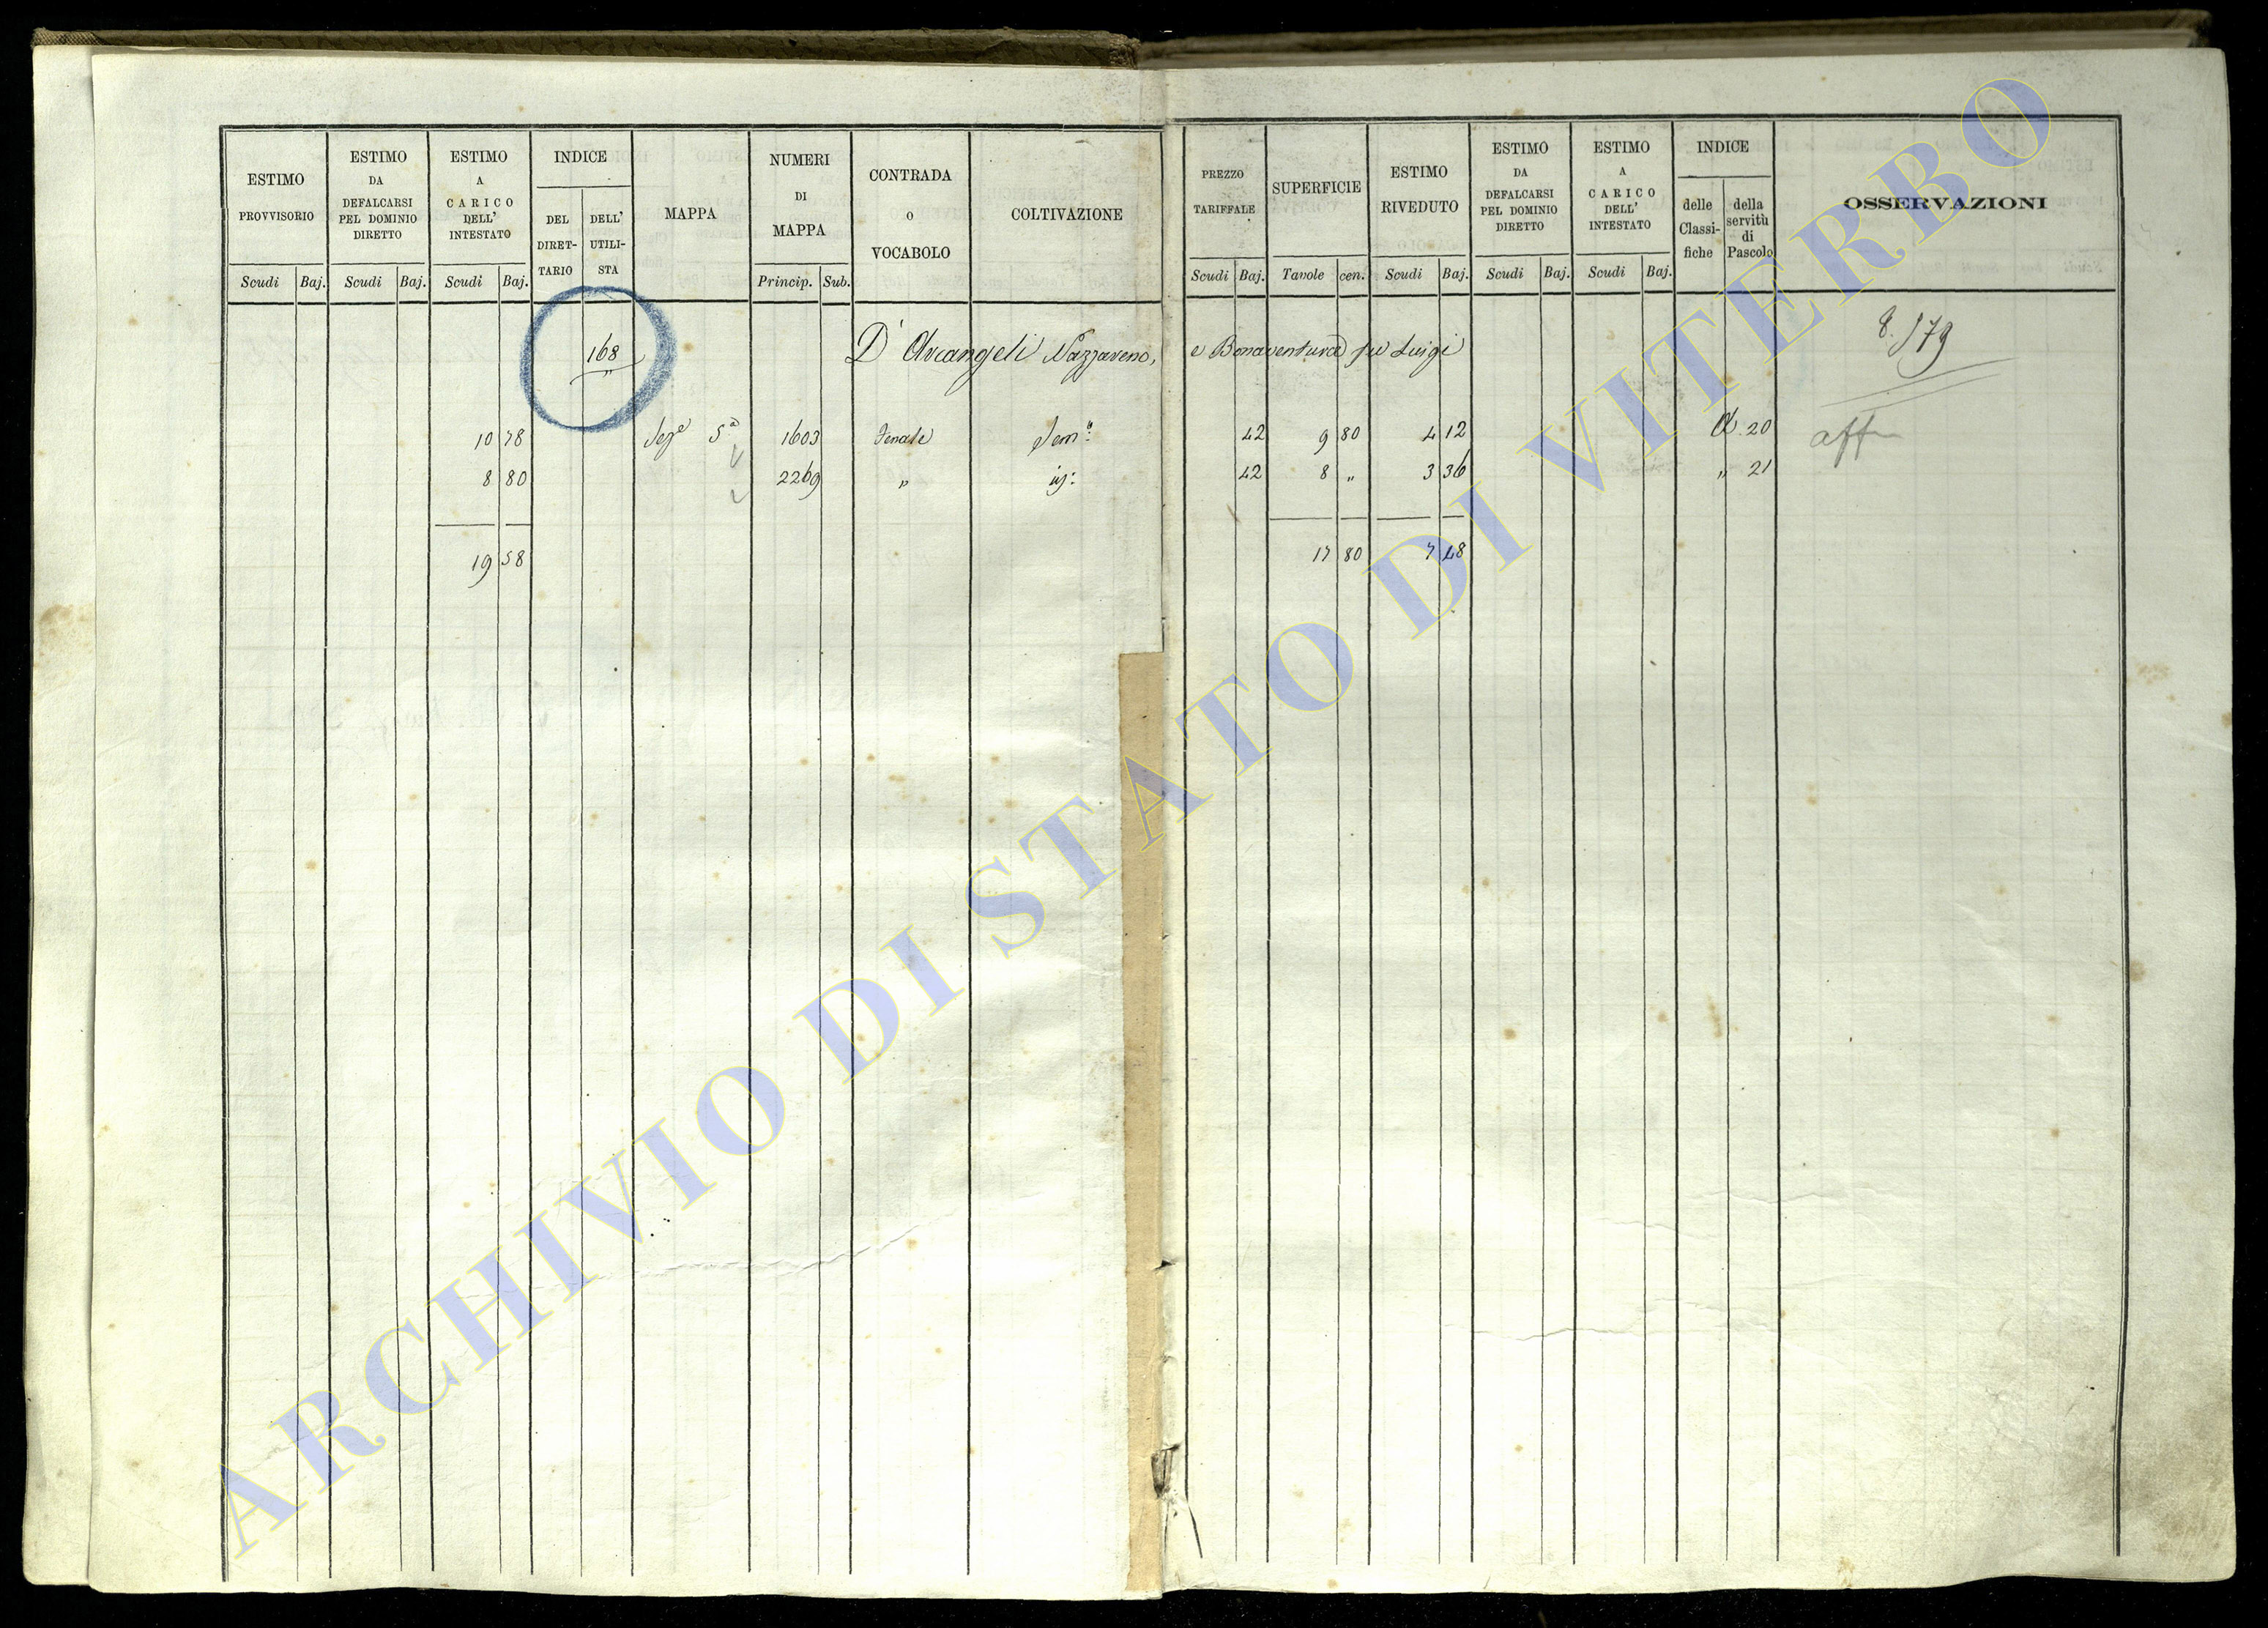 ESTIMO PROVVISORIO
ESTIMO DA DEFALCARSI PEL DOMINIO DIRETTO
ESTIMO A CARICO DELL' INTESTATO
INDICE
DEL DIRET-TARIO
DELL' UTILI-STA
MAPPA
NUMERI DI MAPPA
CONTRADA O VOCABOLO
COLTIVAZIONE
PREZZO TARIFFALE
SUPERFICIE
ESTIMO RIVEDUTO
ESTIMO DA DEFALCARSI PEL DOMINIO DIRETTO
ESTIMO A CARICO DELL' INTESTATO
INDICE
delle Classi-fiche
della servitù di Pascolo
OSSERVAZIONI
Scudi Baj. Scudi Baj. Scudi Baj. Princip. Sub. Scudi Baj. Tavole cen. Scudi Baj. Scudi Baj. Scudi Baj.
168 D'Arcangeli Nazzareno, e Bonaventura fu Luigi 8. 179
10 78 Sez.e 5a 1603 Sem.o 42 9 80 4 12 20 aff
8 80 2269 " 42 8 " 3 36 " 21
19 58 17 80 7 48
ARCHIVIO DI STATO DI VITERBO